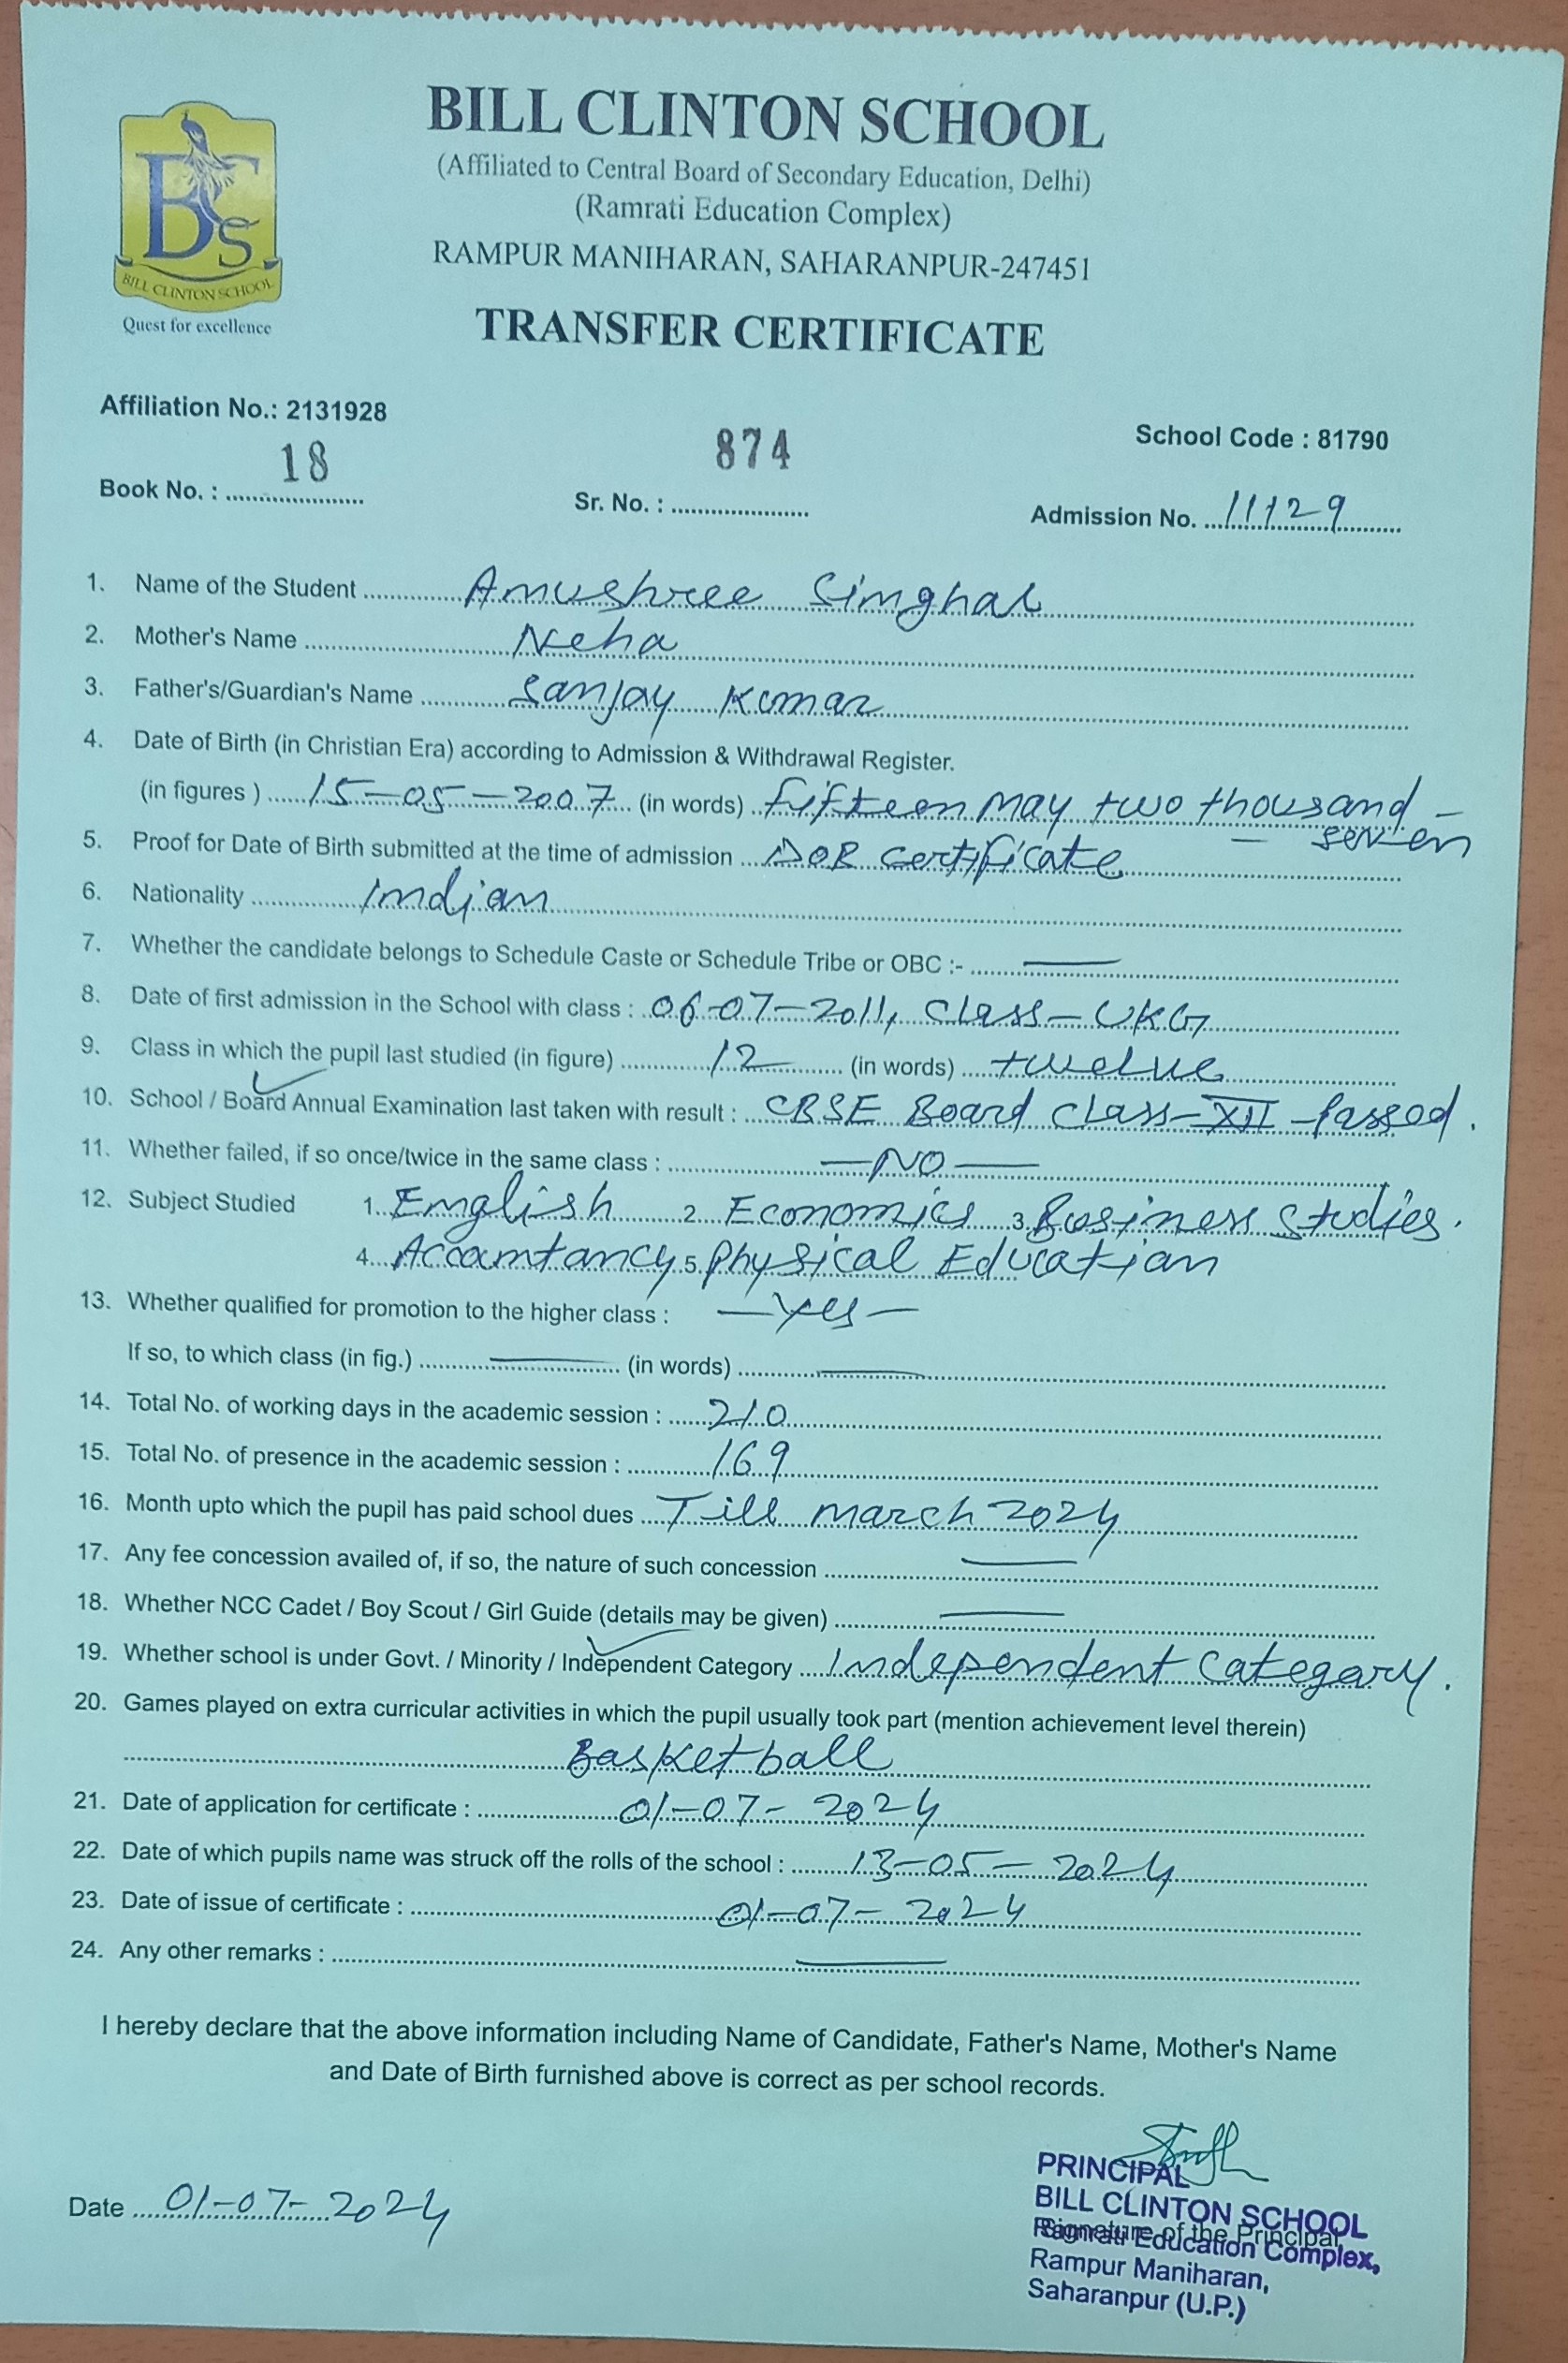 BILL CLINTON SCHOOL
(Affiliated to Central Board of Secondary Education, Delhi)
(Ramrati Education Complex)
RAMPUR MANIHARAN, SAHARANPUR-247451
BS
BILL CLINTON SCHOOL
Quest for excellence
TRANSFER CERTIFICATE
Affiliation No.: 2131928
School Code : 81790
Book No. : 18 Sr. No. : 874 Admission No. 11129
1. Name of the Student Anushree Singhal
2. Mother's Name Neha
3. Father's/Guardian's Name Sanjay Kumar
4. Date of Birth (in Christian Era) according to Admission & Withdrawal Register.
(in figures ) 15-05-2007 (in words) fifteen may two thousand -
- seven
5. Proof for Date of Birth submitted at the time of admission DOB certificate
6. Nationality Indian
7. Whether the candidate belongs to Schedule Caste or Schedule Tribe or OBC :- —
8. Date of first admission in the School with class : 06-07-2011, Class-UKG
9. Class in which the pupil last studied (in figure) 12 (in words) twelve
10. School / Board Annual Examination last taken with result : CBSE Board Class-XII-Passed.
11. Whether failed, if so once/twice in the same class : -NO-
12. Subject Studied 1. English 2. Economics 3. Business Studies.
4. Accountancy 5. Physical Education
13. Whether qualified for promotion to the higher class : -Yes-
If so, to which class (in fig.) — (in words) —
14. Total No. of working days in the academic session : 210
15. Total No. of presence in the academic session : 169
16. Month upto which the pupil has paid school dues Till march 2024
17. Any fee concession availed of, if so, the nature of such concession —
18. Whether NCC Cadet / Boy Scout / Girl Guide (details may be given) —
19. Whether school is under Govt. / Minority / Independent Category Independent Categary.
20. Games played on extra curricular activities in which the pupil usually took part (mention achievement level therein)
Basketball
21. Date of application for certificate : 01-07-2024
22. Date of which pupils name was struck off the rolls of the school : 13-05-2024
23. Date of issue of certificate : 01-07-2024
24. Any other remarks : —
I hereby declare that the above information including Name of Candidate, Father's Name, Mother's Name
and Date of Birth furnished above is correct as per school records.
Date 01-07-2024
PRINCIPAL
BILL CLINTON SCHOOL
Signature of the Principal
Ramrati Education Complex,
Rampur Maniharan,
Saharanpur (U.P.)